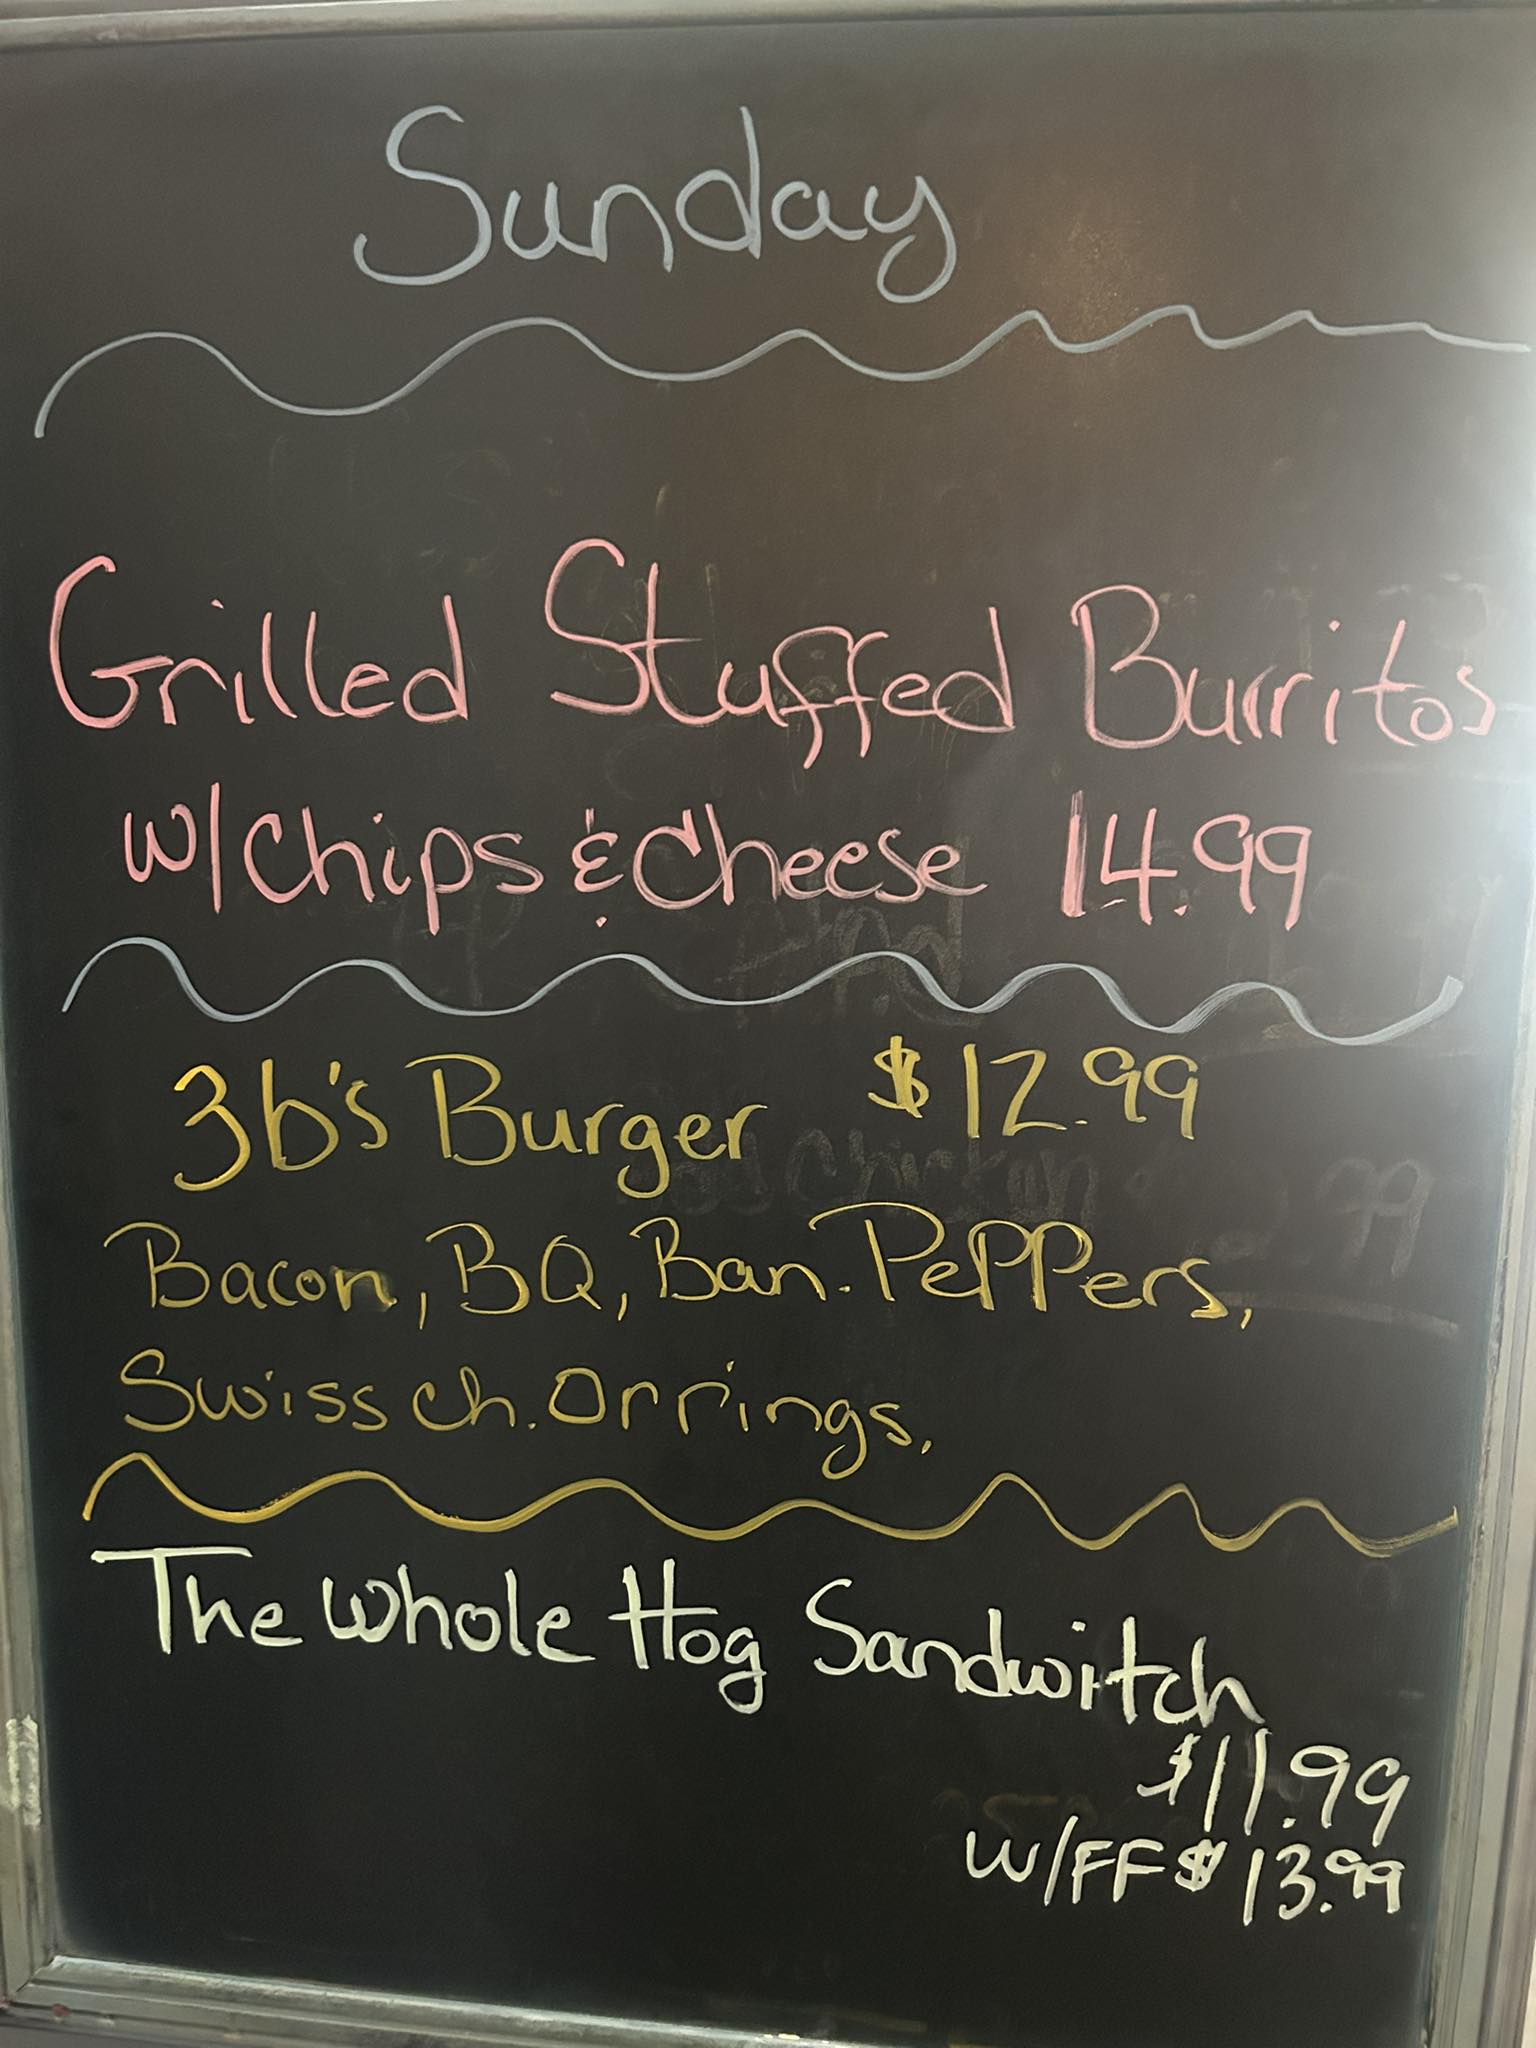 Sunday
Grilled Stuffed Burritos
w/chips & cheese 14.99
3b's Burger $12.99
Bacon, BQ, Ban. Peppers,
Swiss ch. Or rings.
The Whole Hog Sandwitch
$11.99
w/FF $13.99